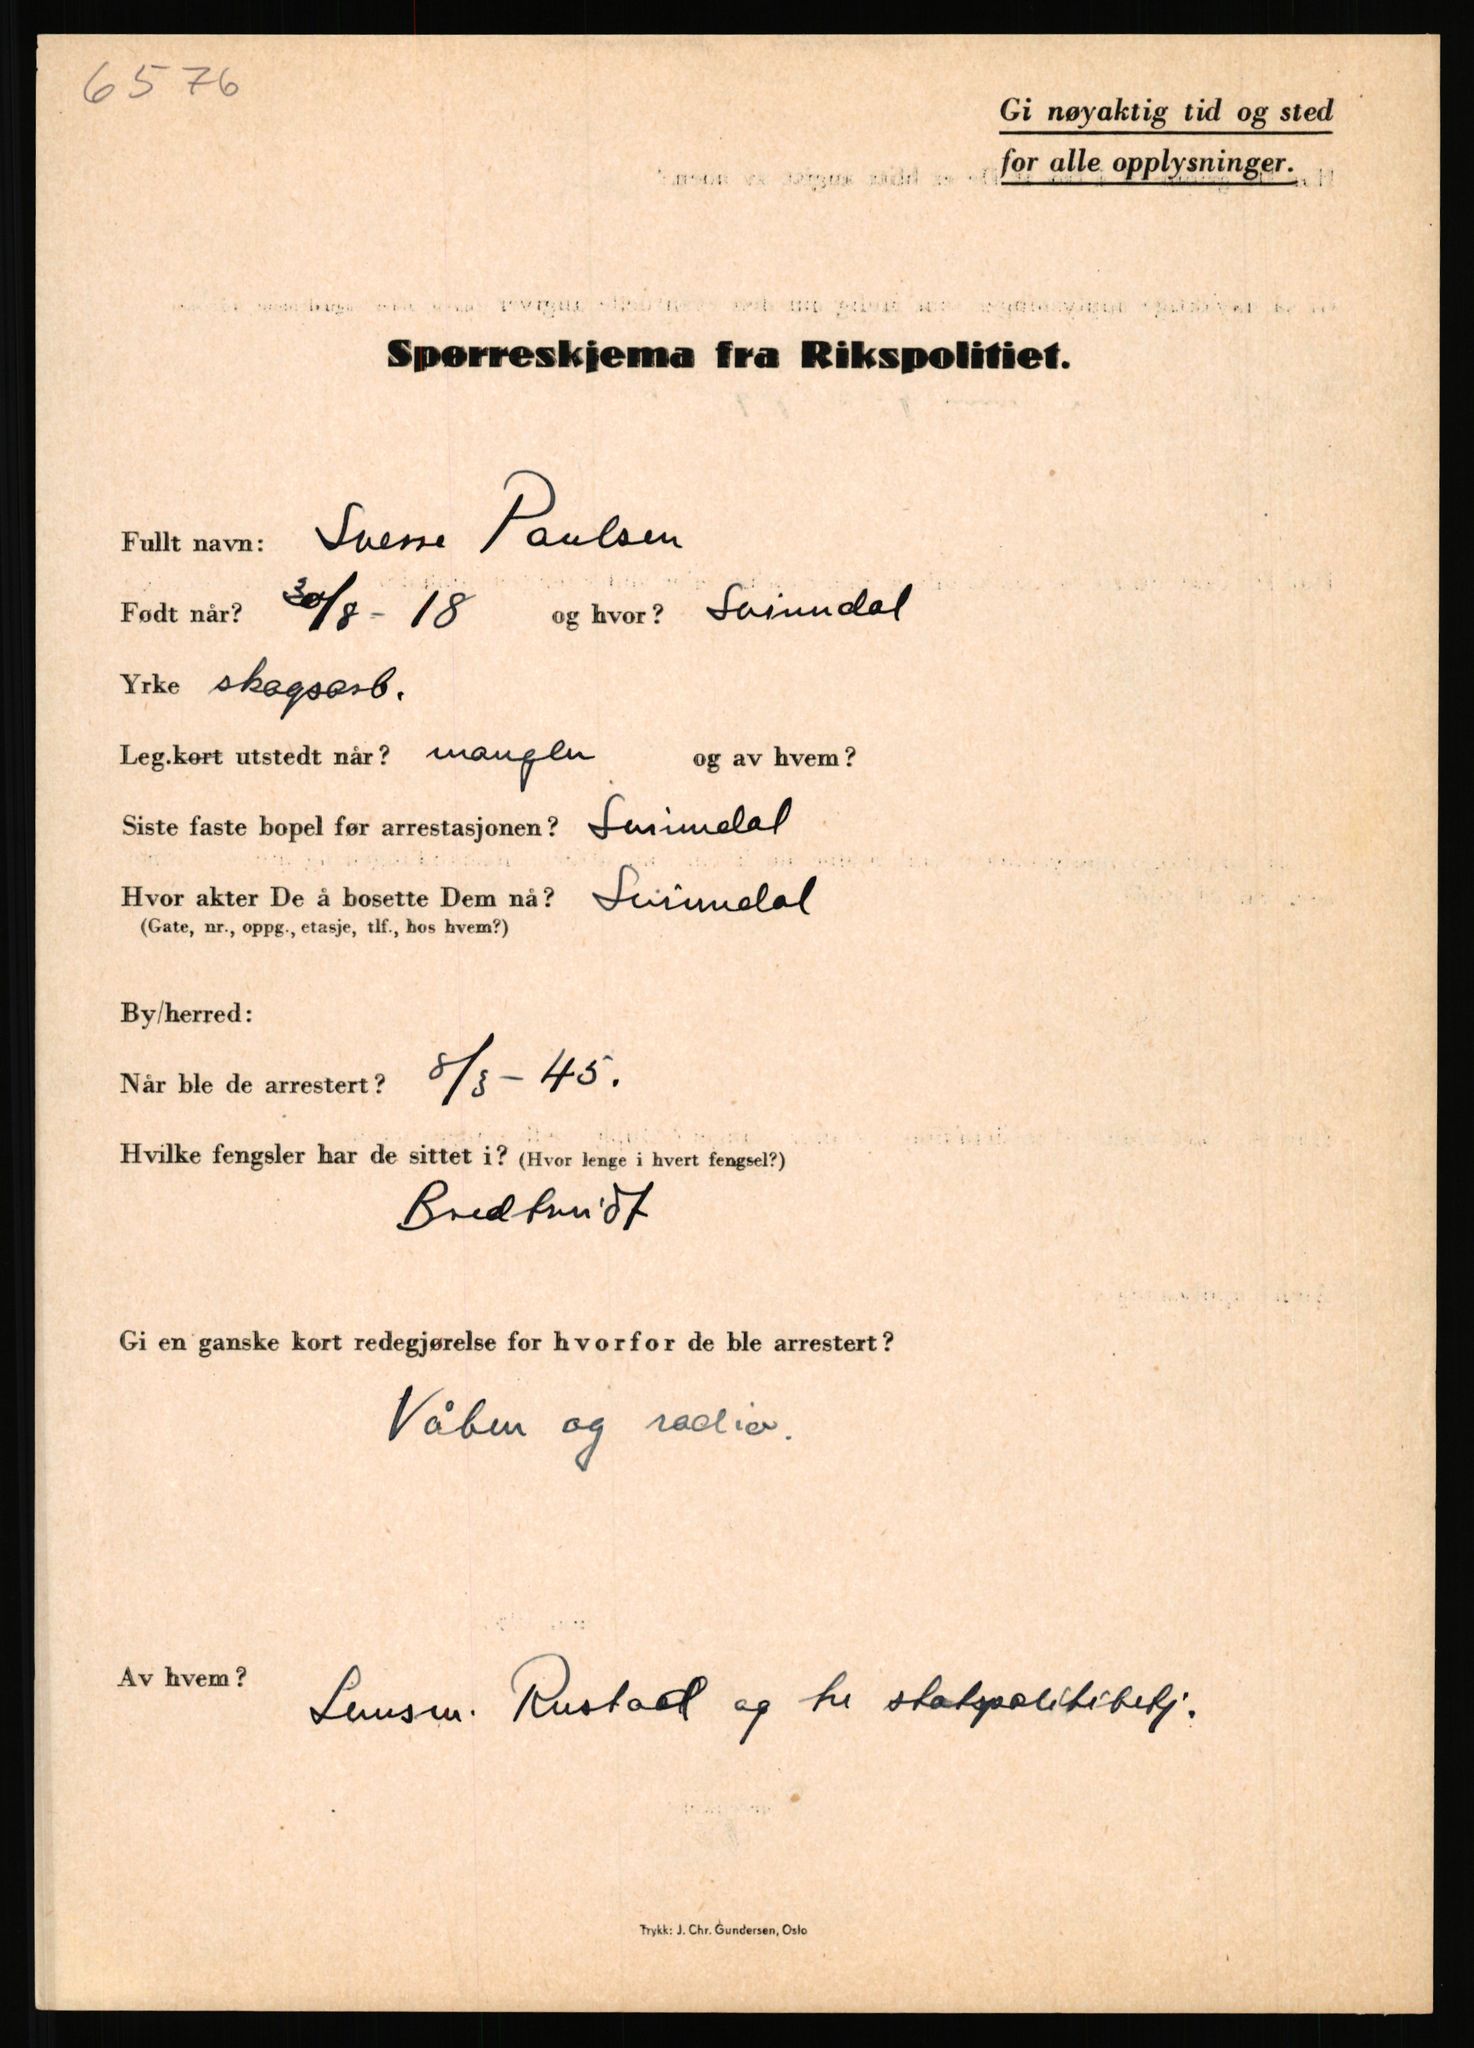 6576
Gi nøyaktig tid og sted
for alle opplysninger.
Spørreskjema fra Rikspolitiet.
Fullt navn: Sverre Paulsen
Født når? 30/8 - 18 og hvor? Svinndal
Yrke skogsarb.
Leg.kort utstedt når? mangler og av hvem?
Siste faste bopel før arrestasjonen? Svinndal
Hvor akter De å bosette Dem nå? Svinndal
(Gate, nr., oppg., etasje, tlf., hos hvem?)
By/herred:
Når ble de arrestert? 8/3 - 45.
Hvilke fengsler har de sittet i? (Hvor lenge i hvert fengsel?)
Bredtveidt
Gi en ganske kort redegjørelse for hvorfor de ble arrestert?
Våben og radio.
Av hvem? Lensm. Rustad og tre statspolitibetj.
Trykk: J. Chr. Gundersen, Oslo